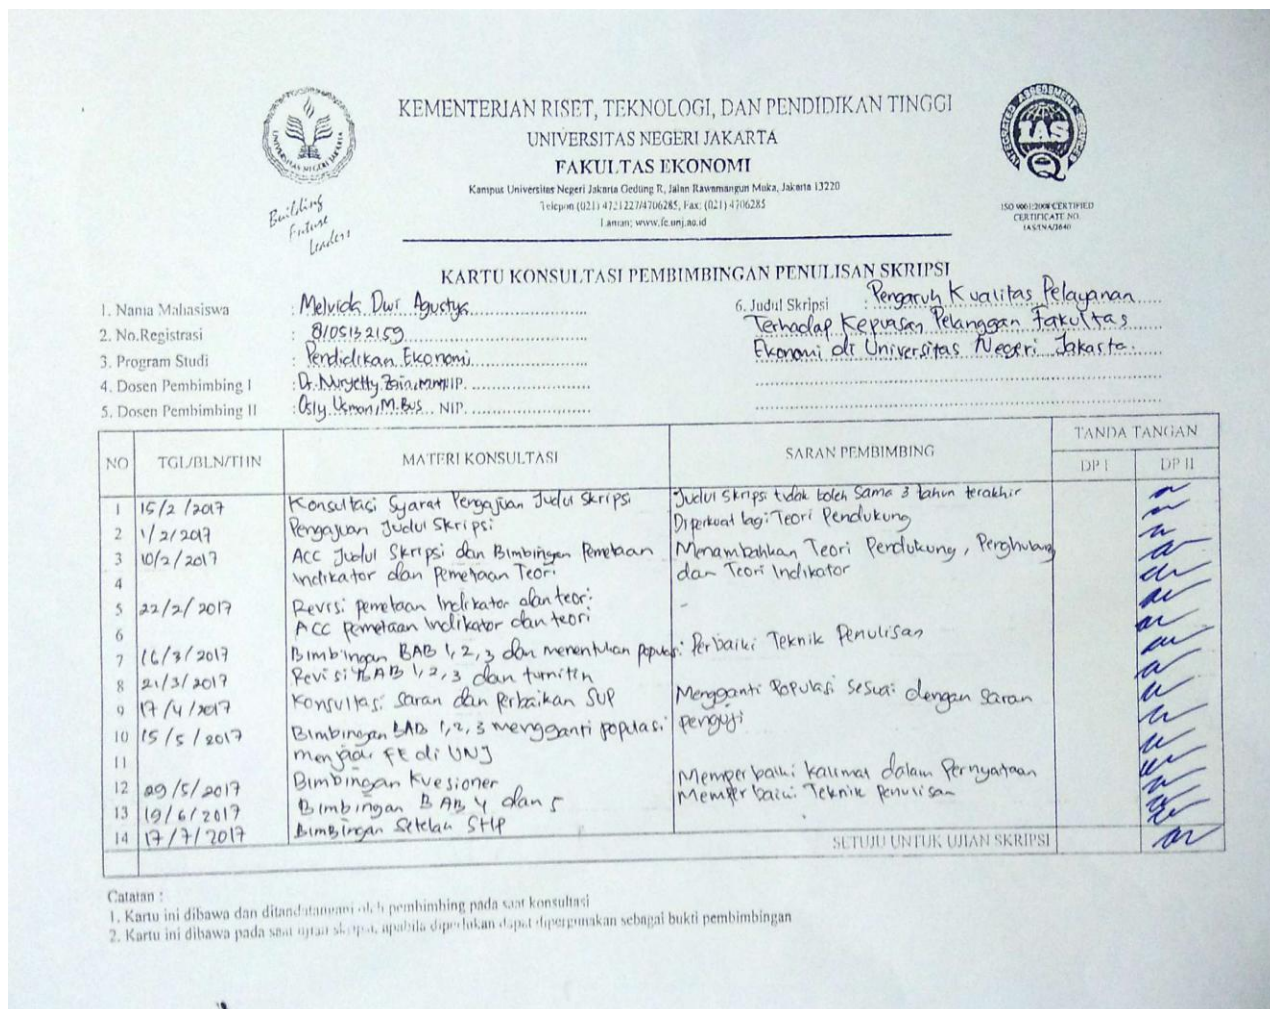 KEMENTERIAN RISET, TEKNOLOGI, DAN PENDIDIKAN TINGGI
UNIVERSITAS NEGERI JAKARTA
FAKULTAS EKONOMI
Kampus Universitas Negeri Jakarta Gedung R, Jalan Rawamangun Muka, Jakarta 13220
Telepon (021) 4721227/4706285, Fax: (021) 4706285
Laman: www.fe.unj.ac.id
Building
Future
Leaders
UNIVERSITAS NEGERI JAKARTA
INTEGRATED ASSESSMENT SERVICES
IAS
ISO 9001:2008 CERTIFIED
CERTIFICATE NO.
KARTU KONSULTASI PEMBIMBINGAN PENULISAN SKRIPSI
1. Nama Mahasiswa : Melvida Dwi Agustya
2. No.Registrasi : 8105132159
3. Program Studi : Pendidikan Ekonomi
4. Dosen Pembimbing I : Dr. Nuryetty Zain, MM NIP.
5. Dosen Pembimbing II : Osly Usman, M.Bus NIP.
6. Judul Skripsi : Pengaruh Kualitas Pelayanan
Terhadap Kepuasan Pelanggan Fakultas
Ekonomi di Universitas Negeri Jakarta.
NO TGL/BLN/THN MATERI KONSULTASI SARAN PEMBIMBING TANDA TANGAN
DP I DP II
1 15/2/2017 Konsultasi Syarat Pengajuan Judul Skripsi Judul Skripsi tidak boleh Sama 3 tahun terakhir
2 1/2/2017 Pengajuan Judul Skripsi Diperkuat lagi Teori Pendukung
3 10/2/2017 ACC Judul Skripsi dan Bimbingan Pemetaan Menambahkan Teori Pendukung, Penghubung
4 Indikator dan Pemetaan Teori dan Teori Indikator
5 22/2/2017 Revisi pemetaan Indikator dan teori -
6 ACC pemetaan Indikator dan teori
7 16/3/2017 Bimbingan BAB 1, 2, 3 dan menentukan populasi Perbaiki Teknik Penulisan
8 21/3/2017 Revisi BAB 1, 2, 3 dan turnitin
9 17/4/2017 Konsultasi saran dan Perbaikan SUP Mengganti Populasi sesuai dengan saran
10 15/5/2017 Bimbingan BAB 1, 2, 3 mengganti populasi penguji
11 menjadi FE di UNJ
12 29/5/2017 Bimbingan Kuesioner Memperbaiki kalimat dalam Pernyataan
13 19/6/2017 Bimbingan BAB 4 dan 5 Memperbaiki Teknik Penulisan
14 17/7/2017 Bimbingan Setelah SHP
SETUJU UNTUK UJIAN SKRIPSI
Catatan :
1. Kartu ini dibawa dan ditandatangani oleh pembimbing pada saat konsultasi
2. Kartu ini dibawa pada saat ujian skripsi, apabila diperlukan dapat dipergunakan sebagai bukti pembimbingan